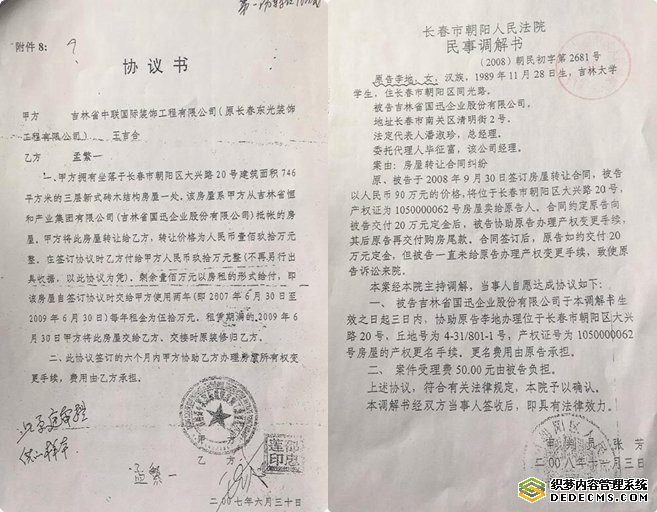 附件8:
协议书
甲方 吉林省中联国际装饰工程有限公司(原长春东光装饰
工程有限公司) 王言合
乙方 孟繁一
一、甲方拥有坐落于长春市朝阳区大兴路20号建筑面积746
平方米的三层新式砖木结构房屋一处。该房屋系甲方从吉林省恒
和产业集团有限公司(吉林省国迅企业股份有限公司)抵帐的房
屋。甲方将此房屋转让给乙方,转让价格为人民币壹佰玖拾万元
整。在签订协议时乙方付给甲方人民币玖拾万元整(不再另行出
具收据,以此协议为凭)。剩余壹佰万元以房租的形式给付,即
该房屋自签订协议时交给甲方使用两年(即2007年6月30日至
2009年6月30日)每年租金为伍拾万元。租赁期满的。2009年6
月30日甲方将此房屋交给乙方。交接时原装修归乙方。
二、此协议签订的六个月内甲方协助乙方办理房屋所有权变
更手续,费用由乙方承担。
乙方
孟繁一
二00七年六月三十日
长春市朝阳人民法院
民事调解书
(2008)朝民初字第2681号
原告李地、女,汉族,1989年11月28日生,吉林大学
学生,住长春市朝阳区同光路。
被告吉林省国迅企业股份有限公司。
地址长春市南关区清明街2号。
法定代表人潘淑珍,总经理。
委托代理人毕征富,该公司经理。
案由:房屋转让合同纠纷
原、被告于2008年9月30日签订房屋转让合同,被告
以人民币90万元的价格,将位于长春市朝阳区大兴路20号,
产权证为1050000062号房屋卖给原告人。合同约定原告向
被告交付20万元定金后,被告协助原告办理产权变更手续,
其后原告再交付购房尾款。合同签订后,原告如约交付20
万元定金,但被告一直未给原告办理产权变更手续,致使原
告诉讼来院。
本案经本院主持调解,当事人自愿达成协议如下:
一、被告吉林省国迅企业股份有限公司于本调解书生
效之日起三日内,协助原告李地办理位于长春市朝阳区大兴
路20号,丘地号为4-31/801-1号,产权证号为1050000062
号房屋的产权更名手续。更名费用由原告承担。
二、案件受理费50.00元由被告负担。
上述协议,符合有关法律规定,本院予以确认。
本调解书经双方当事人签收后,即具有法律效力。
审判员 张芳
二00八年十一月三日
织梦内容管理系统
DEDECMS.COM